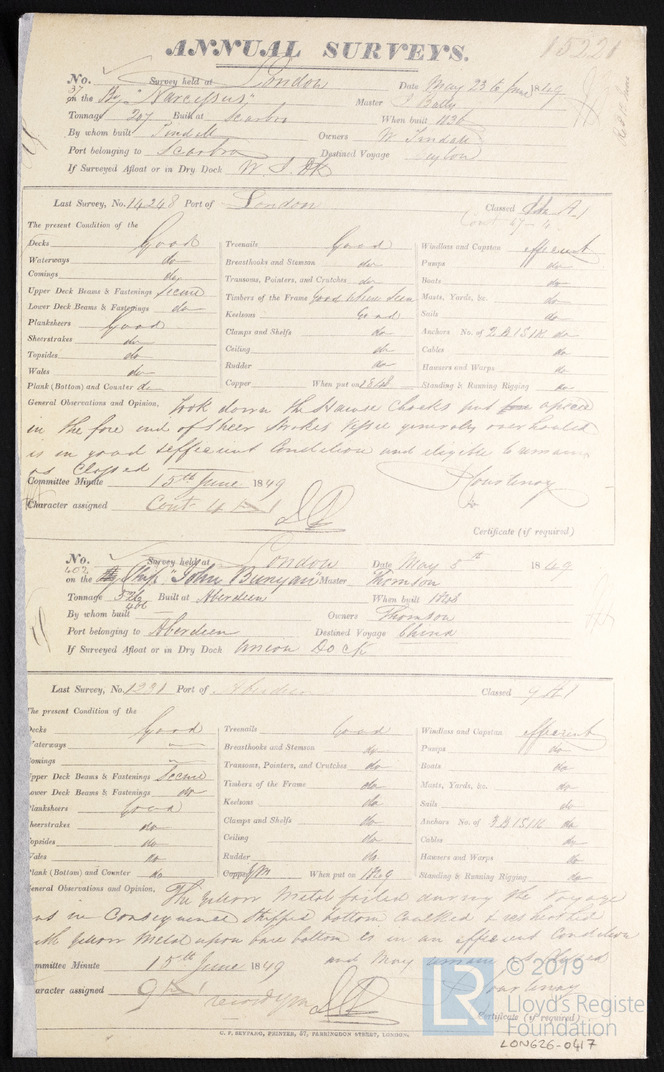 ANNUAL SURVEYS. 15221
No. 37 Survey held at London Date May 23 to June 1849
on the Bg "Narcissus" Master J Batty
Tonnage 207 Built at Scarbro When built 1836
By whom built Tindall Owners W Tindall
Port belonging to Scarbro Destined Voyage Ceylon
If Surveyed Afloat or in Dry Dock W I DK
Last Survey, No. 14248 Port of London Classed
Cont
The present Condition of the
Decks Good Treenails Good Windlass and Capstan efficient
Waterways do Breasthooks and Stemson do Pumps do
Comings do Transoms, Pointers, and Crutches do Boats do
Upper Deck Beams & Fastenings Secure Timbers of the Frame good where seen Masts, Yards, &c. do
Lower Deck Beams & Fastenings do Keelsons Good Sails do
Planksheers Good Clamps and Shelfs do Anchors No. of 2 B 1 S 1 K do
Sheerstrakes do Ceiling do Cables do
Topsides do Rudder do Hawsers and Warps do
Wales do Copper When put on 1848 Standing & Running Rigging do
Plank (Bottom) and Counter do
General Observations and Opinion. Took down the Hawse Chocks put a piece
in the fore end of Sheer Strakes Vessel generally overhauled
is in good & efficient Condition and eligible to remain
as Classed
Committee Minute 15th June 1849 Courtenay
Character assigned Cont
Certificate (if required)
No. 402 Survey held at London Date May 5th 1849
on the Ship "John Bunyan" Master Thomson
Tonnage 526 466 Built at Aberdeen When built 1848
By whom built — Owners Thomson
Port belonging to Aberdeen Destined Voyage China
If Surveyed Afloat or in Dry Dock Union Dock
Last Survey, No. 1331 Port of Aberdeen Classed 9 A 1
The present Condition of the
Decks Good Treenails Good Windlass and Capstan efficient
Waterways — Breasthooks and Stemson do Pumps do
Comings — Transoms, Pointers, and Crutches do Boats do
Upper Deck Beams & Fastenings Secure Timbers of the Frame do Masts, Yards, &c. do
Lower Deck Beams & Fastenings do Keelsons do Sails do
Planksheers Good Clamps and Shelfs do Anchors No. of 3 B 1 S 1 K do
Sheerstrakes do Ceiling do Cables do
Topsides do Rudder do Hawsers and Warps do
Wales do Copper YM When put on 1849 Standing & Running Rigging do
Plank (Bottom) and Counter do
General Observations and Opinion. The yellow Metal failed during the Voyage
was in Consequence Stripped bottom Caulked & resheathed
with yellow Metal upon bare bottom is in an efficient Condition
and may remain as Classed
Committee Minute 15th June 1849 Courtenay
Character assigned 9 A 1 record YM
Certificate (if required)
C. F. SEYFANG, PRINTER, 57, FARRINGDON STREET, LONDON.
LR © 2019
Lloyd's Registe
Foundation
LON626-0417